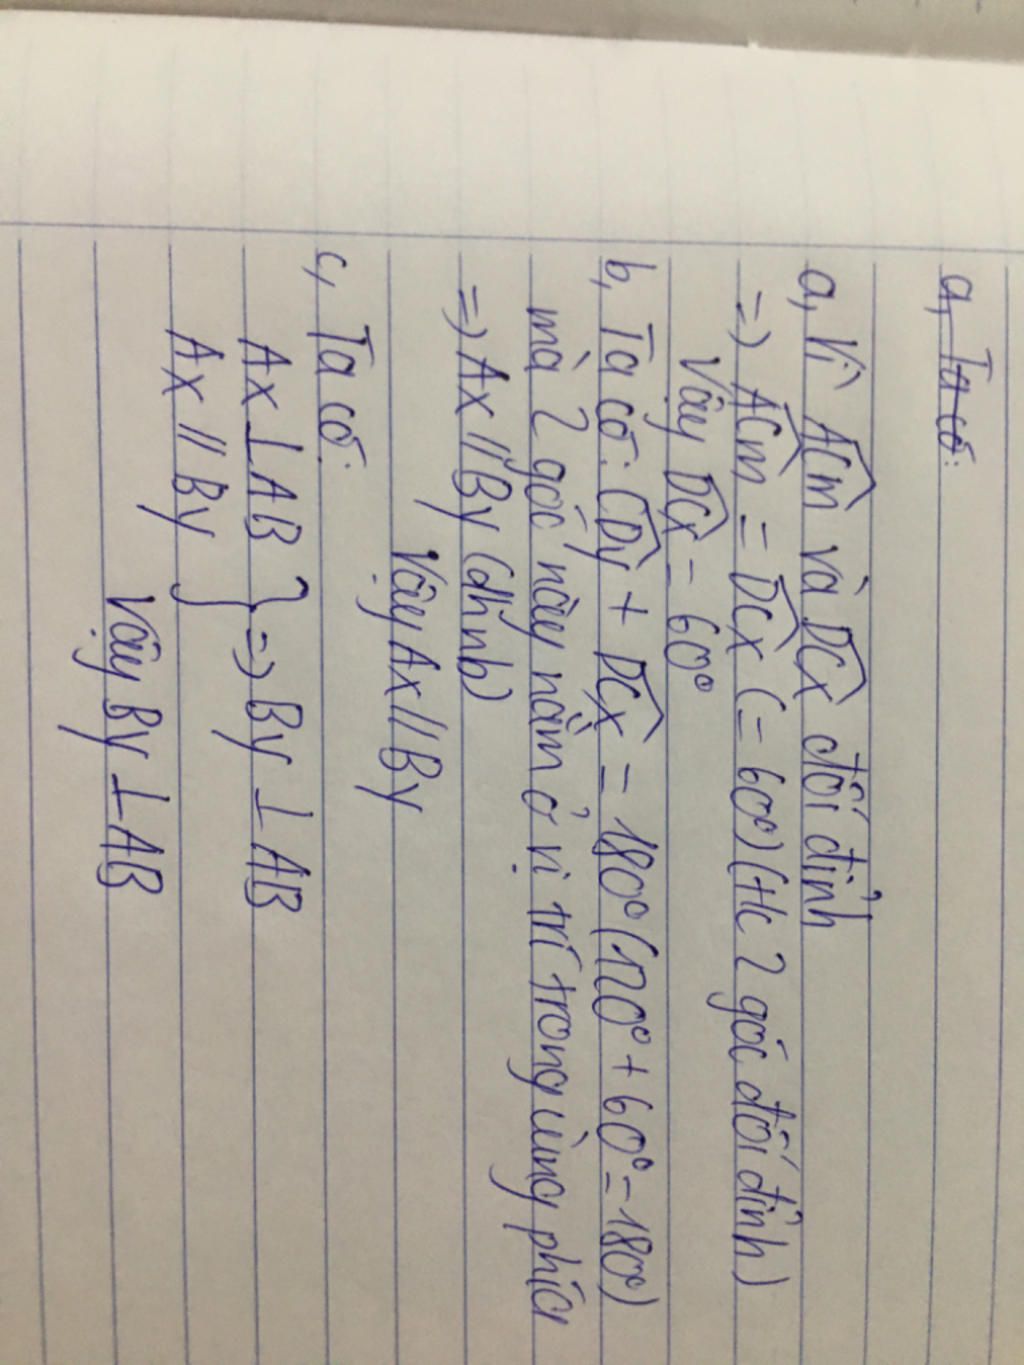 a, Ta có:
a, Vì ACm và DCx đối đỉnh
=> ACm = DCx (= 60°) (tc 2 góc đối đỉnh)
Vậy DCx = 60°
b, Ta có: CDy + DCx = 180° (120° + 60° = 180°)
mà 2 góc này nằm ở vị trí trong cùng phía
=> Ax // By (dhnb)
Vậy Ax // By
c, Ta có:
Ax ⊥ AB } => By ⊥ AB
Ax // By
Vậy By ⊥ AB